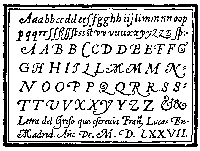 Aaabbccddeeſſgghhiijlimmnnoop
pqqrrſſßſſssttvvuuxxyyzzz
AABBCCDDEEFFG
GHHIJLLMMMN
NNOOPPQQRRSS
TTUVVXXYYZZ &
Letra del Grifo que escreuia Franc. Lucas En
Madrid Año De. M. D. LXXVII.